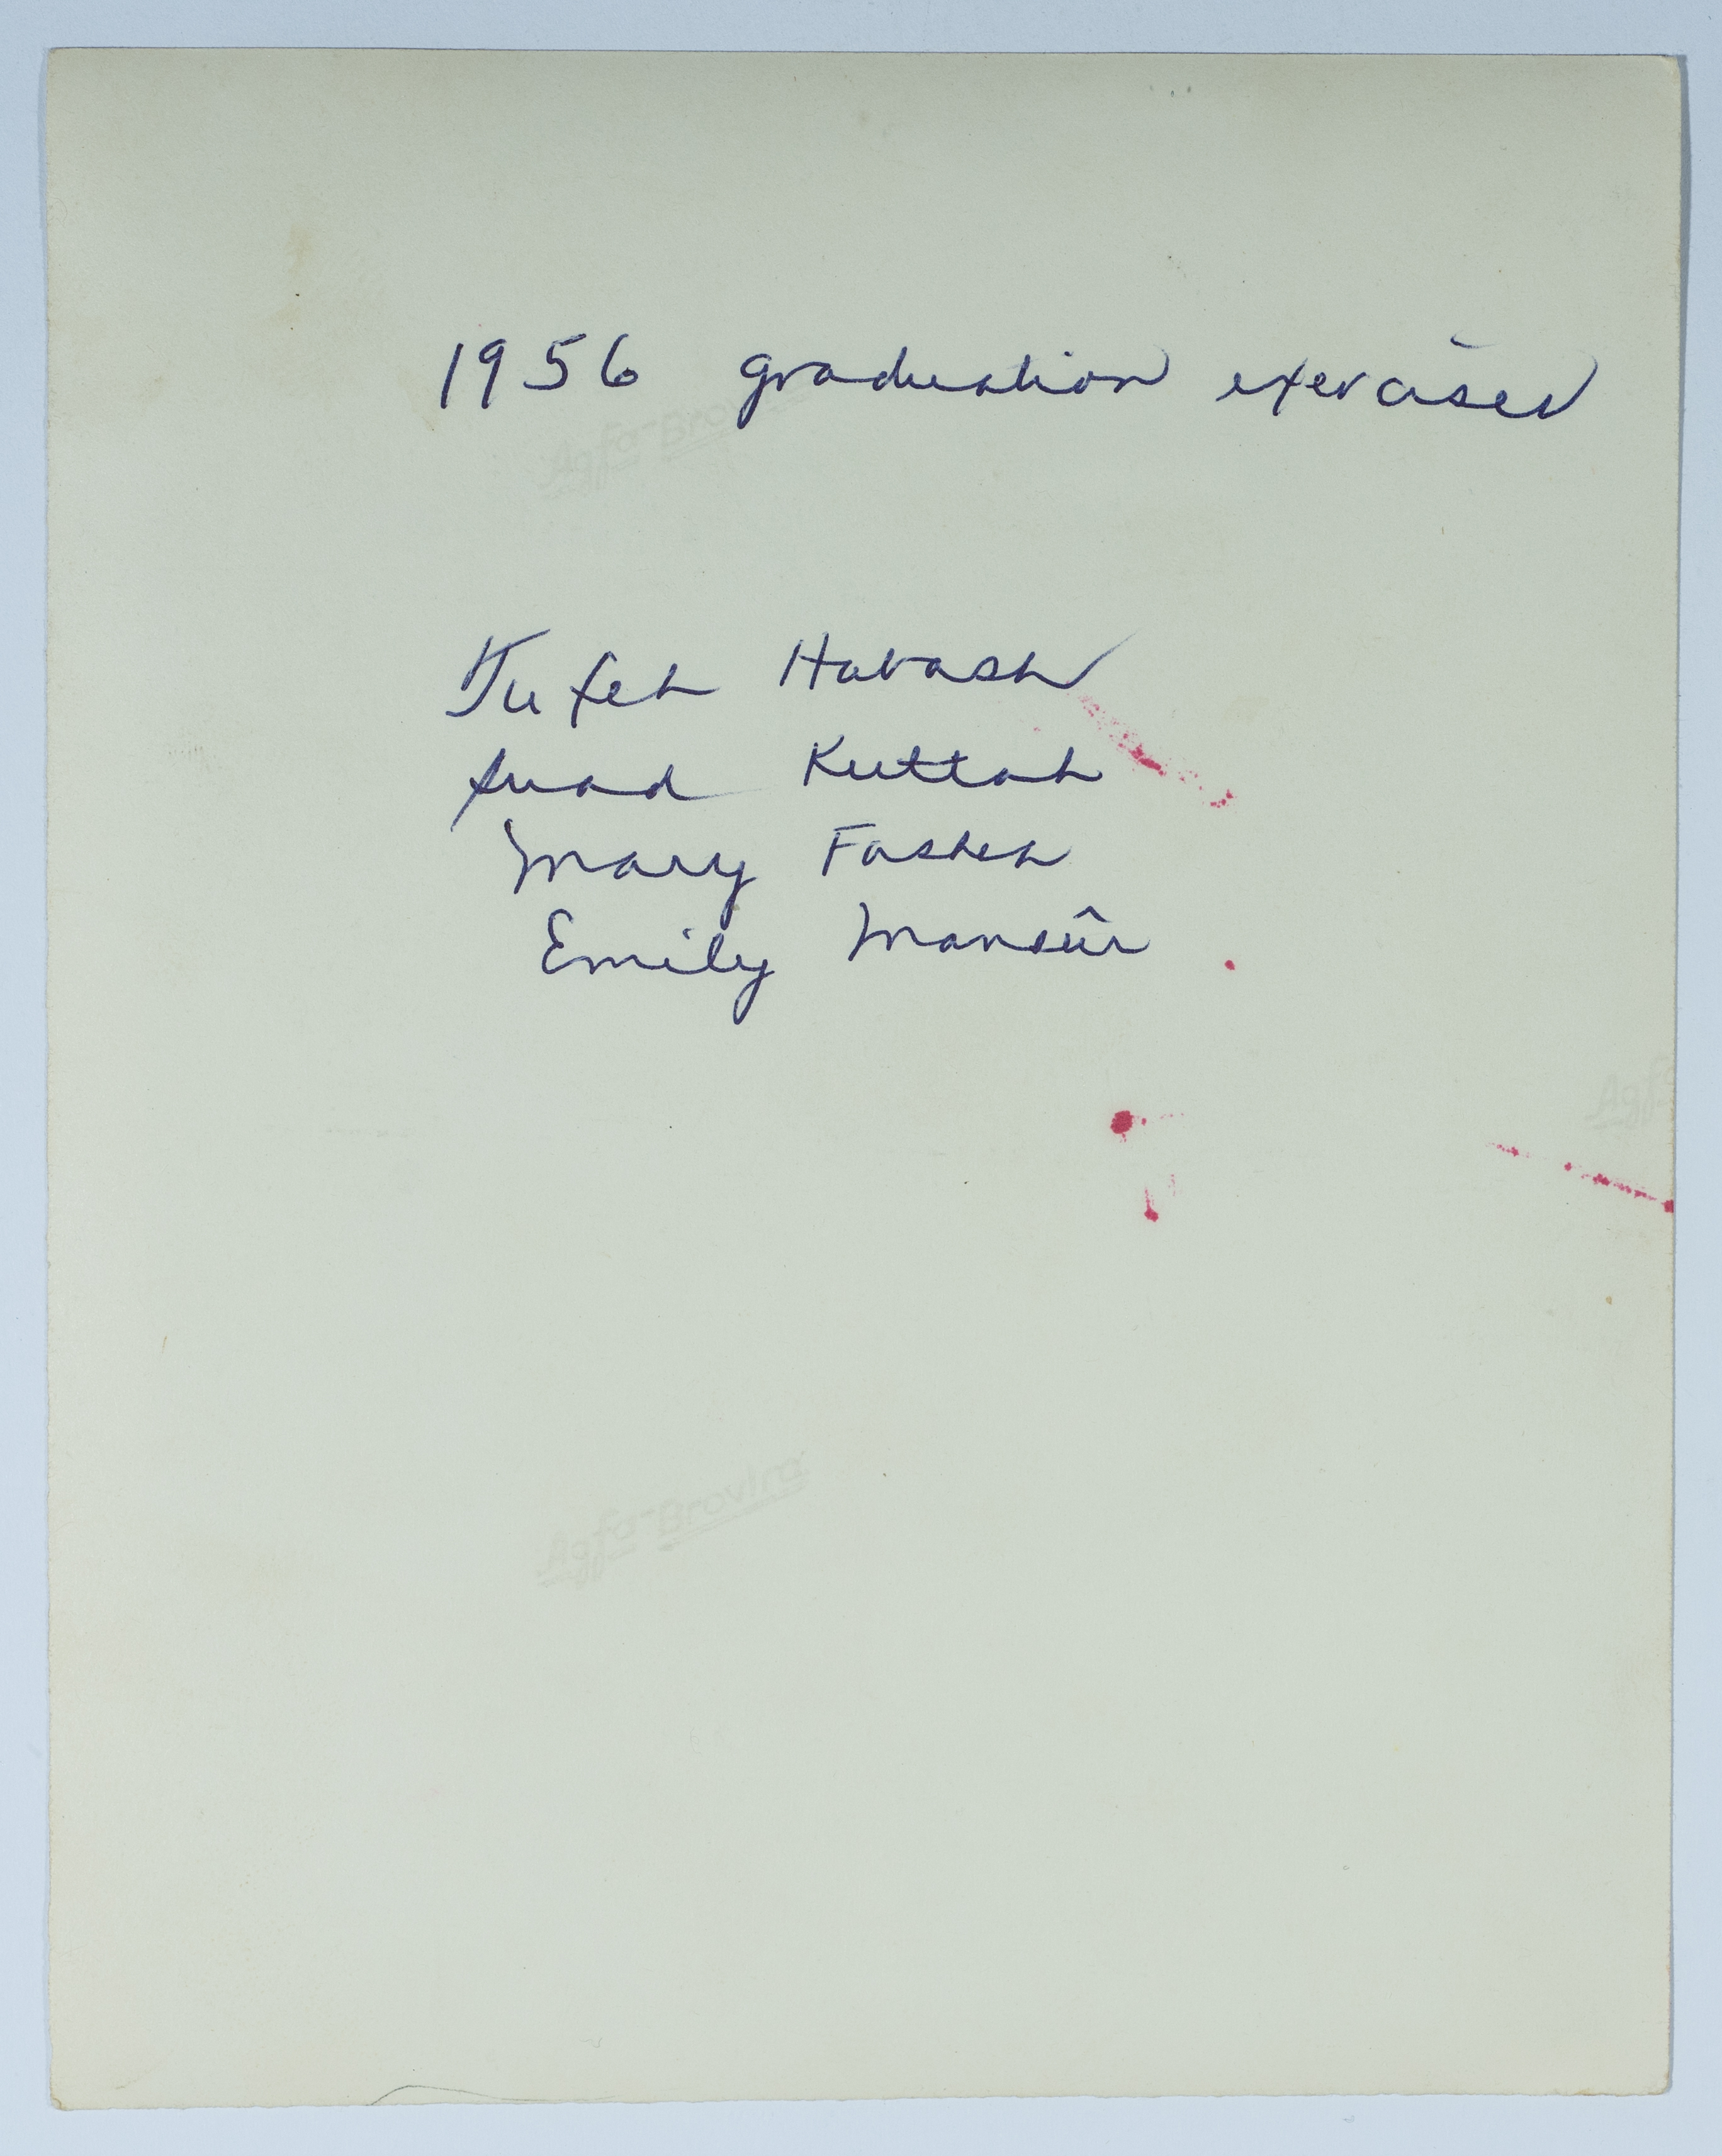 1956 graduation exercises
Agfa-Brovira
Tufeh Habash
Fuad Kuttab
Mary Fasheh
Emily Mansûr
Agfa
Agfa-Brovira